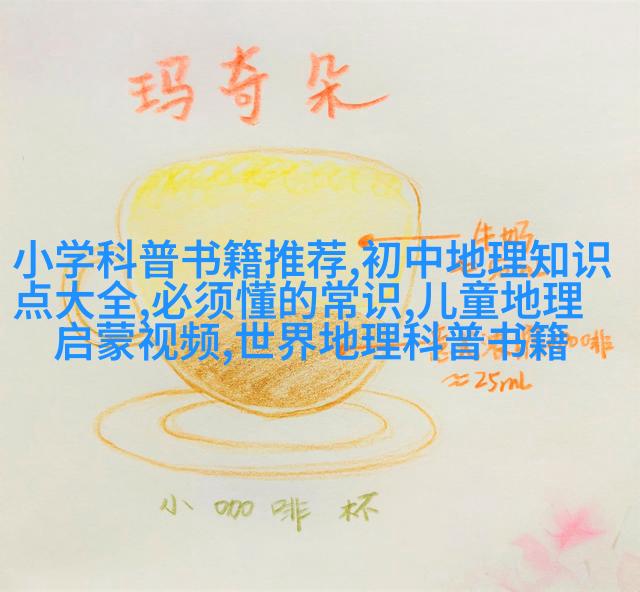 玛奇朵
小学科普书籍推荐,初中地理知识
点大全,必须懂的常识,儿童地理
启蒙视频,世界地理科普书籍
啡
≈25mL
小咖啡杯